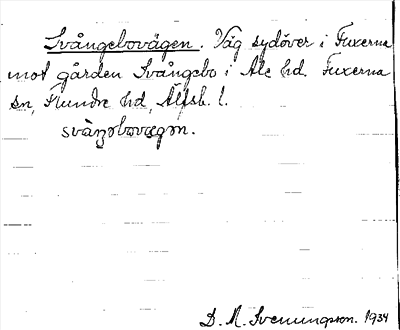 Svångebovägen. Väg sydöver i Fuxerna
mot gården Svångebo i Ale hd. Fuxerna
sn, Flundre hd, Älfsb. l.
D. A. Svenungsson. 1934